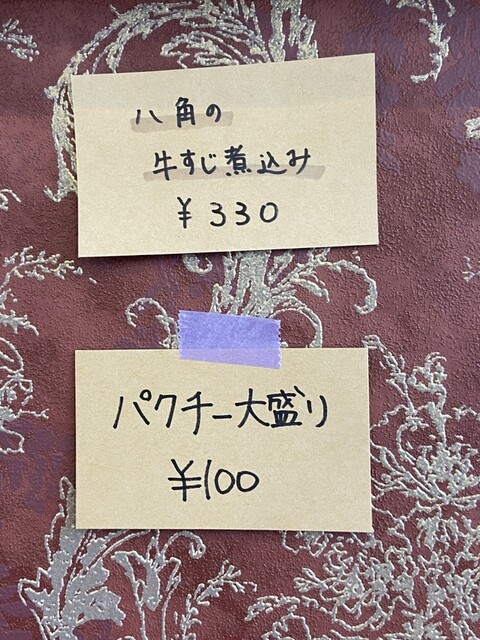 八角の
牛すじ煮込み
¥330
パクチー大盛り
¥100